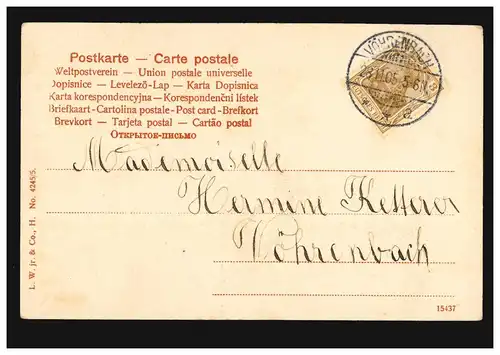 Postkarte — Carte postale
Weltpostverein — Union postale universelle
Dopisnice — Levelező-Lap — Karta Dopisnica
Karta korespondencyjna — Korespondenční lístek
Briefkaart - Cartolina postale - Post card - Brefkort
Brevkort — Tarjeta postal — Cartão postal
ОТКРЫТОЕ-ПИСЬМО
VÖHRENBACH
11.05. 5-6N.
Mademoiselle
Hermine Ketterer
Vöhrenbach
L. W. jr. & Co., H. No. 4245/5.
15437